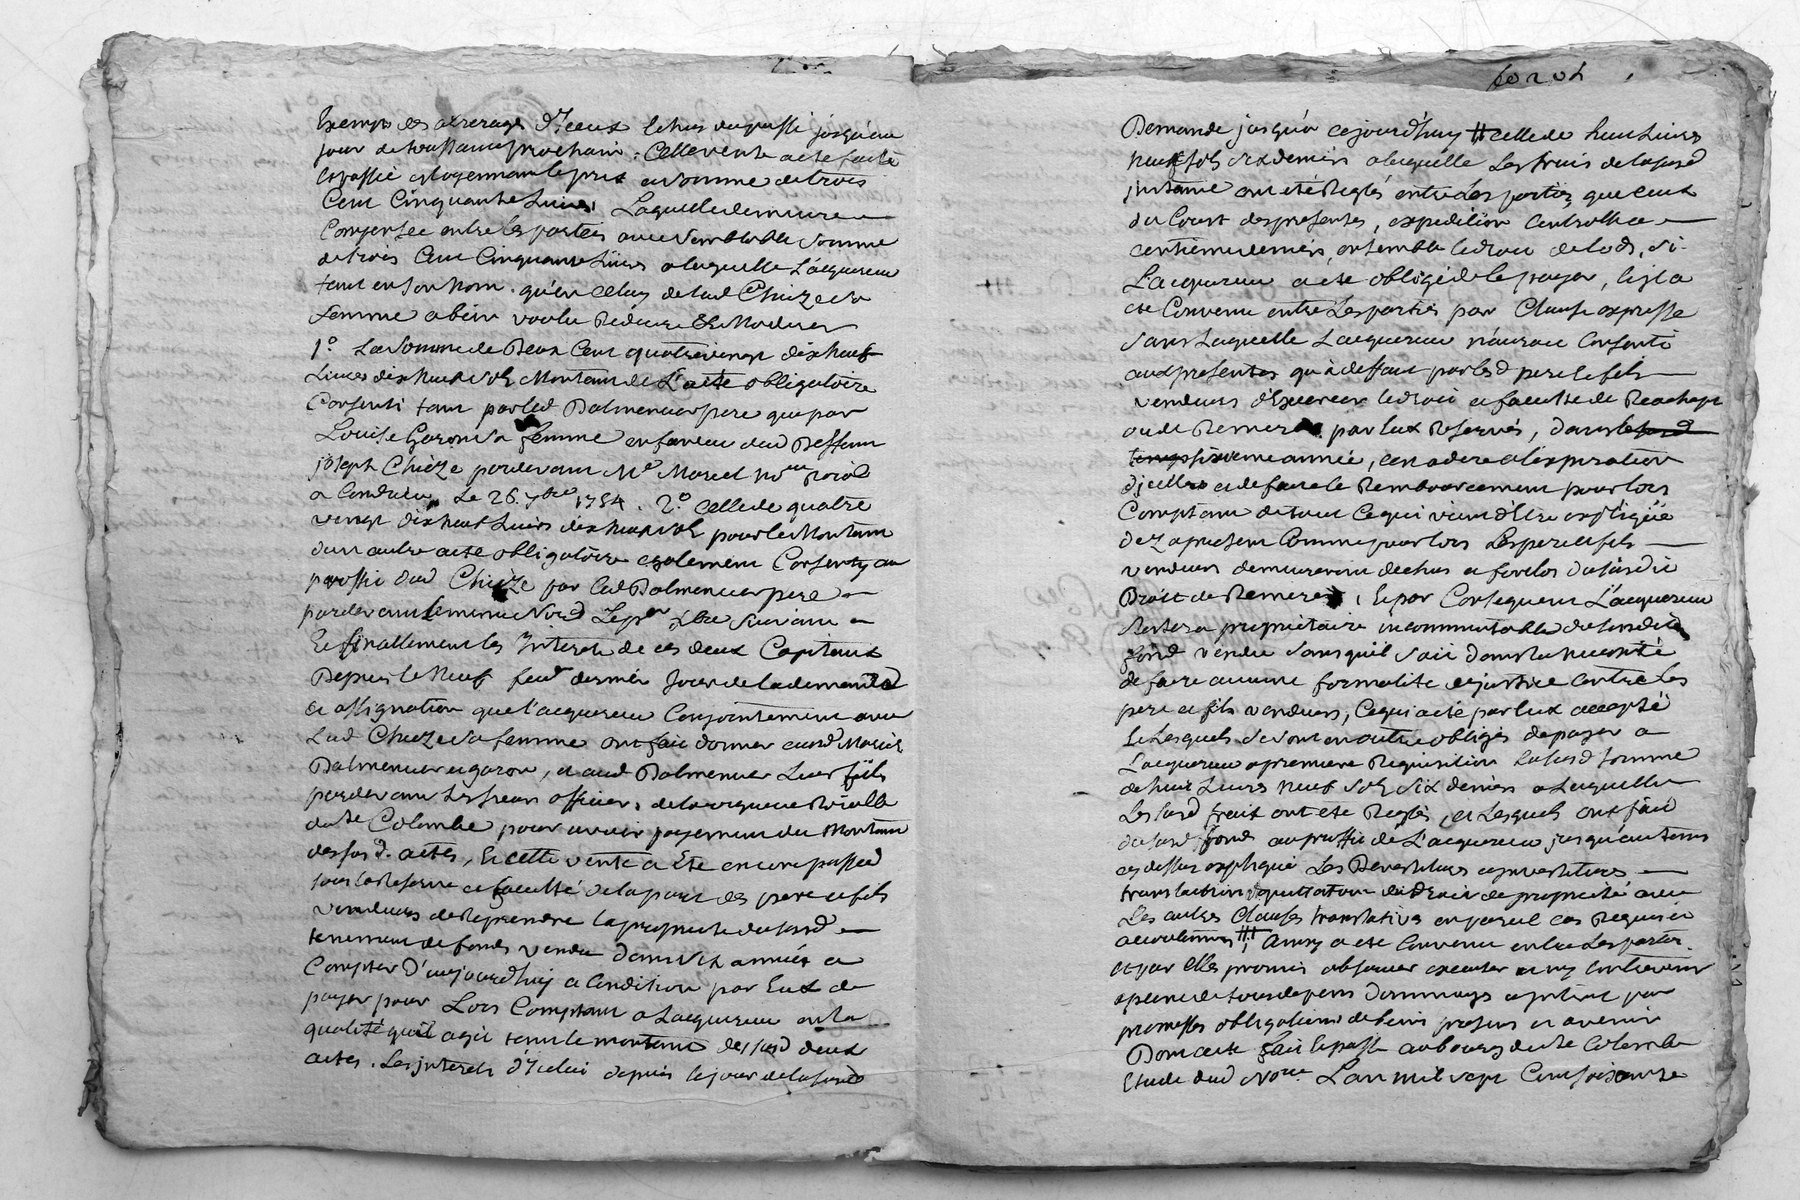 Exempts des arrerages d'Iceux le tems du passé jusqu'au
jour de toussaint prochain. Cette vente a eté faite
et passée moyennant le prix et somme de trois
Cent Cinquante Livres, Laquelle demeure
Compensée entre les parties avec semblable somme
de trois Cent Cinquante Livres a laquelle L'acquereur
tant en son nom qu'en celuy de lad Chieze sa
femme a bien voulu Reduire & Moderer
1° La somme de Deux Cent quatrevingt dixneuf
Livres dixneuf sols Montant de L'acte obligatoire
Consenti tant par led Dalmencer pere que par
Louise Garon sa femme en faveur dud Deffunt
joseph Chieze pardevant Me Morel Nore Roial
a Condrieu Le 26 7bre 1754. 2° Celle de quatre
vingt dixneuf Livres dixneuf sols pour le Montant
d'un autre acte obligatoire egalement Consenty au
proffit dud Chieze par led Dalmencer pere
pardevant le meme Nored Le per Xbre suivant
Et finallement les Interets de ces deux Capitaux
Depuis le Neuf feuv dernier Jour de la demande
et assignation que l'acquereur Conjointement avec
Lad Chieze sa femme ont fait donner auxd Mariés
Dalmencer et garon, et aud Dalmencer Leur fils
pardevant les sieurs officiers de la viguerie Roialle
de Ste Colombe pour avoir payement du Montant
des susd. actes, Et cette vente a Eté encore passée
sous la Reserve et faculté de la part des pere et fils
vendeurs de Reprendre la proprieté du susd
tenement de fonds vendu dans six années a
Compter D'aujourdhuy a Condition par Eux de
payer pour Lors Comptant a Lacquereur en la
qualité qu'il agit tant le montant des susd deux
actes. Les jnterets d'Icelui depuis le jour de la susd
fo 204
Demande jusqu'a cejourd'huy # celle de huit Livres
neuf sols six deniers a laquelle Les frais de la susd
jnstance ont eté Reglés entre Les parties, que ceux
du Court des presentes, expedition Controlle
centieme deniers, ensemble le droit de lods, si
L'acquereur a eté obligé de le payer, Et il a
eté Convenu entre Les parties par Clause expresse
sans Laquelle L'acquereur n'auroit Consenti
aux presentes qu'à deffaut par lesd pere et fils
vendeurs d'Exercer le droit et faculté de Reachapt
ou de Remere par Eux Reservés, dans le susd
temps sixieme année, cen a dire a l'expiration
d'jcelles et de faire le Remboursement pour lors
Comptant de tout Ce qui vient d'être expliqué
dez a present Comme pour lors Les pere et fils
vendeurs demeureront dechus et forclos du susdit
Droit de Remere, Et par Consequent L'acquereur
Restera proprietaire incommutable du susdit
fond vendu sans quil soit dans la necessité
de faire aucune formalite de justice contre Les
pere et fils vendeurs, Ce qui a eté par Eux accepté
Et Lesquels se sont en outre obligés de payer a
L'acquereur a premiere Requisition La susd somme
de huit Livres neuf sols six deniers a Laquelle
Les susd frais ont eté Reglés, et Lesquels ont fait
du susd fonds au proffit de L'acquereur jusqu'au tems
cy dessus expliqué Les Devestitures investitures
translations & quittation de droit de proprieté avec
Les autres Clauses translatives en pareil cas Requises
accoutumés ##, Ainsy a eté Convenu entre Les parties
et par Elles promis observer executer et ny contrevenir
a peine de tous depens dommages et jnterets par
promesses obligations de biens presens et avenir
Dont acte fait et passé au bourg de Ste Colombe
Etude dud Nore L'an mil sept Cent soixante